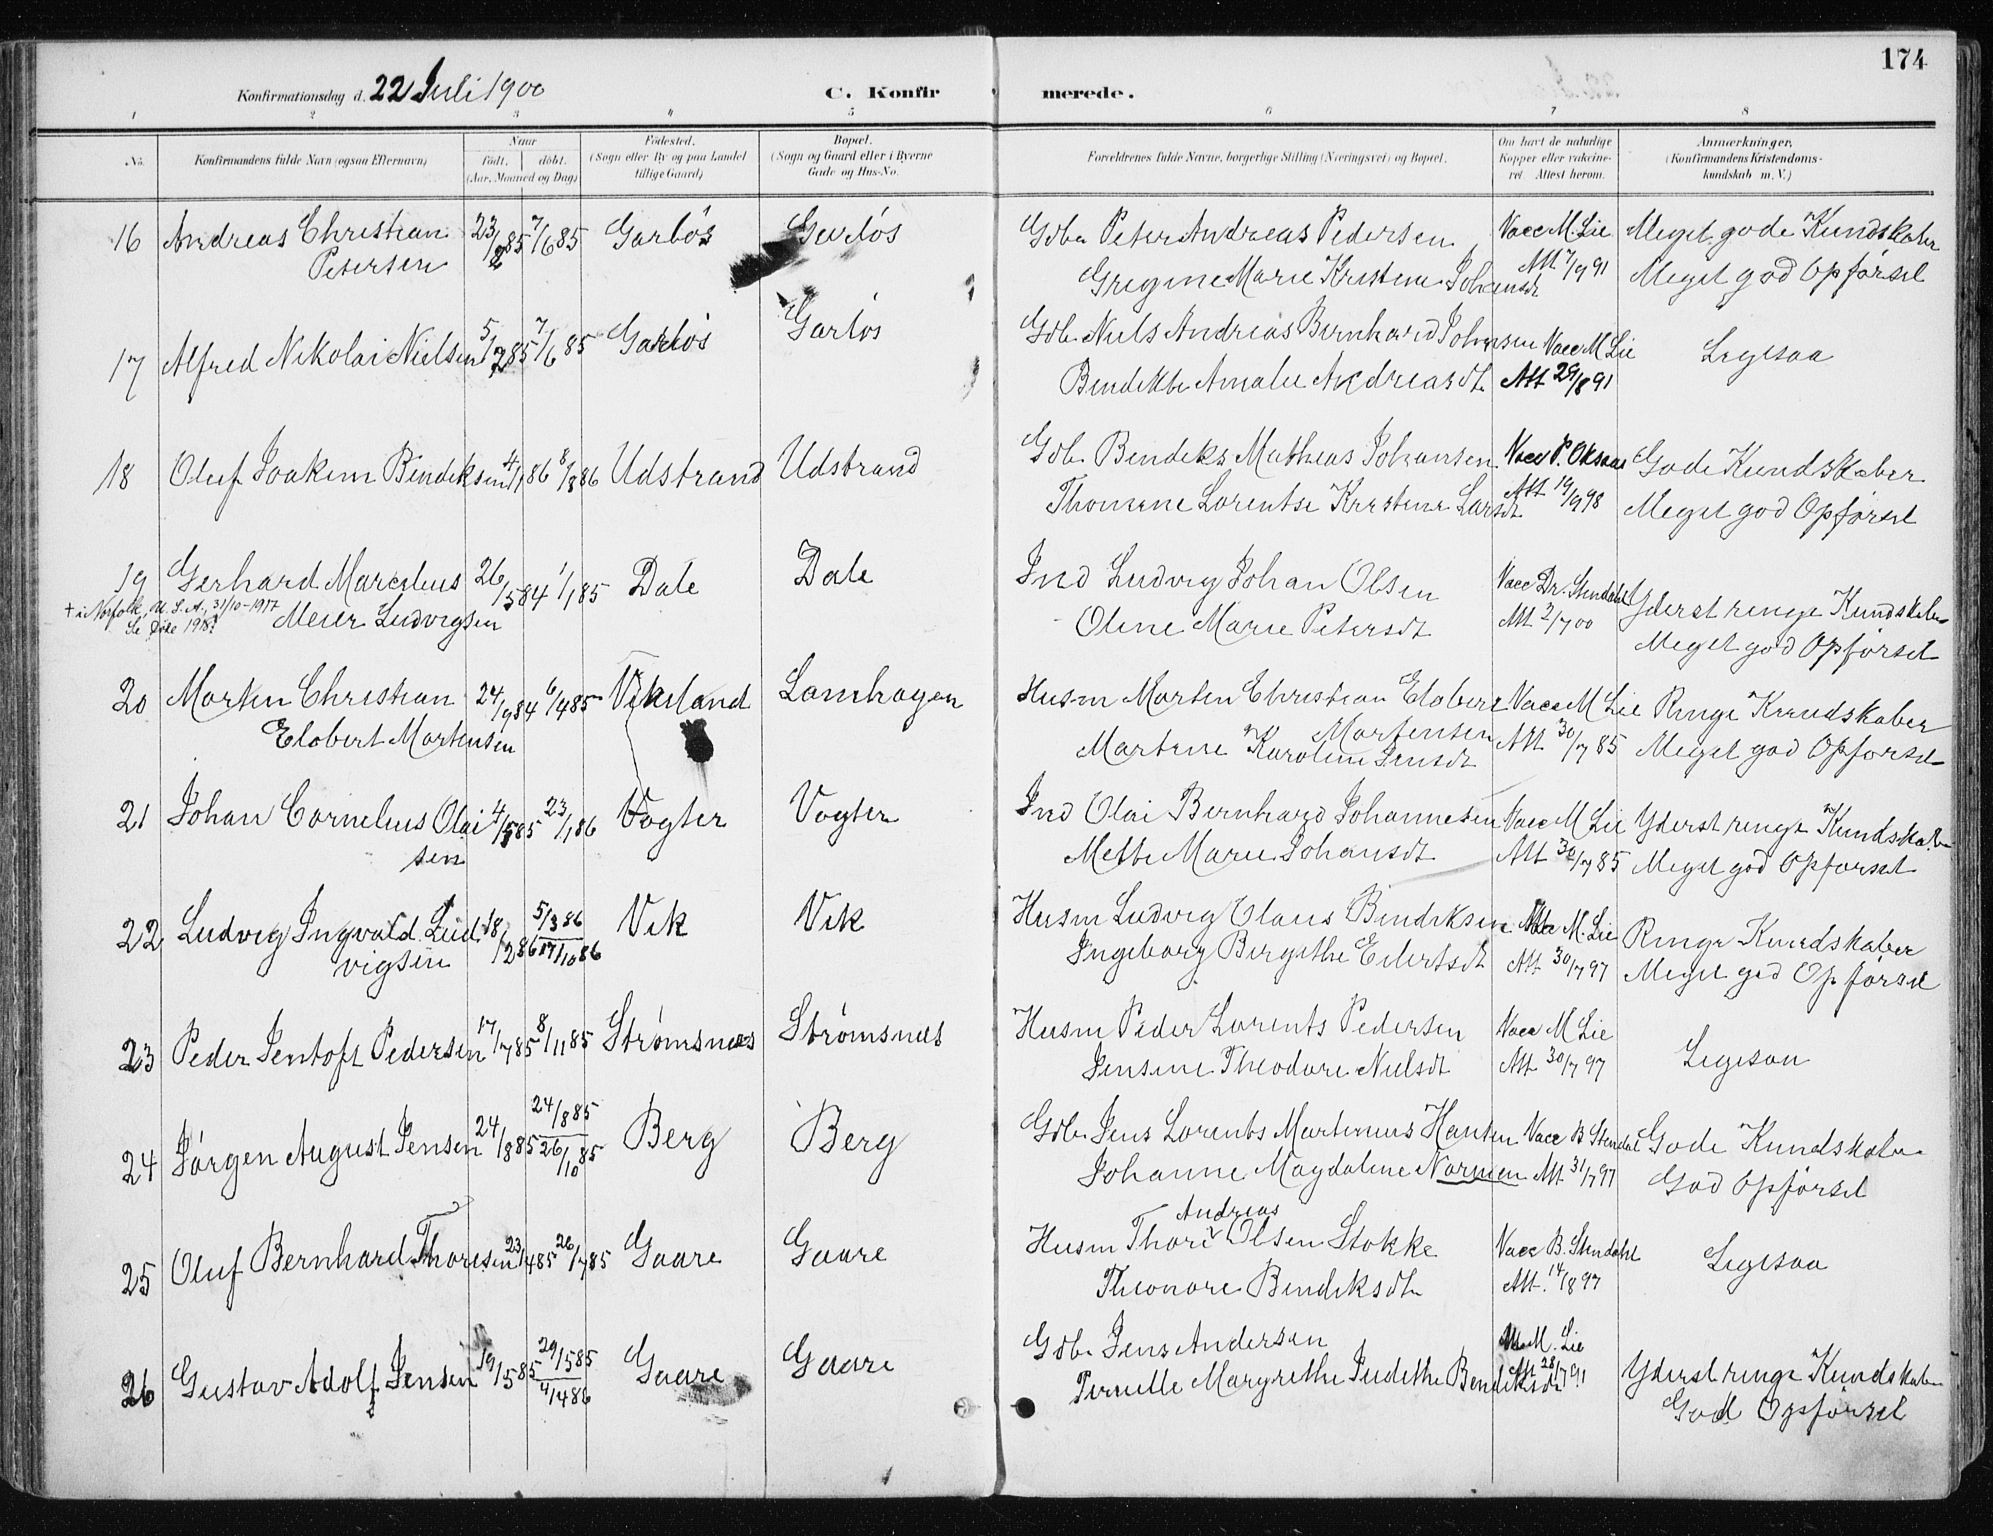 174
Konfirmationsdag d. 22 Juli 1900 C. Konfirmerede.
1 2 3 4 5 6 7 8
No. Konfirmandens fulde Navn (ogsaa Efternavn) Naar født. døbt. (Aar, Maaned og Dag) Fødested. (Sogn eller By og paa Landet tillige Gaard) Bopæl. (Sogn og Gaard eller i Byerne Gade og Hus-No. Forældrenes fulde Navne, borgerlige Stilling (Næringsvei) og Bopæl. Om havt de naturlige Kopper eller vakcineret. Attest herom. Anmærkninger, (Konfirmandens Kristendomskundskab m. V.)
16 Andreas Christian 23/2 85 7/6 85 Garløs Garløs Gdbr Peter Andreas Pedersen Vacc M. Lie Meget gode Kundskaber
Petersen Marie Kristine Johansdt Att 7/9 91 Meget god Opførsel
17 Alfred Nikolai Nielsen 5/2 85 7/6 85 Garløs Garløs Gdbr Niels Andreas Bernhard Johansen Vacc M Lie Ligesaa
Bendikte Amalie Andreasdt Att 29/8 91
18 Oluf Joakim Bendiksen 4/1 86 8/8 86 Udstrand Udstrand Gdbr Bendiks Mathias Johansen Vacc P. Oksaas Gode Kundskaber
Thomine Lorentse Kristine Larsdt Att 19/9 98 Meget god Opførsel
19 Gerhard Marcelius 26/5 84 1/1 85 Dale Dale Ind Ludvig Johan Olsen Vacc Dr. Stendahl Yderst ringe Kundskaber
† i Norfolk, U.S.A., 31/10-1917 Meier Ludvigsen Oline Marie Petersdt Att 2/7 00 Meget god Opførsel
20 Morten Christian 24/9 84 6/4 85 Vikeland Lamhagen Husm Morten Christian Elobert Vacc M Lie Ringe Kundskaber
Elobert Mortensen Mortensen
Martine Karoline Jensdt Att 30/7 85 Meget god Opførsel
21 Johan Cornelius Olai 4/5 85 23/1 86 Vogter Vogter Ind Olai Bernhard Johannesen Vacc M Lie Yderst ringe Kundskaber
sen Mette Marie Johansdt Att 30/7 85 Meget god Opførsel
22 Ludvig Ingvald Lud 18/2 86 5/3 86 Vik Vik Husm Ludvig Olaus Bendiksen Vacc M. Lie Ringe Kundskaber
vigsen 17/10 86 Ingeborg Birgithe Eilertsdt Att 30/7 97 Meget god Opførsel
23 Peder Jentoft Pedersen 17/7 85 8/11 85 Strømsnæs Strømsnæs Husm Peder Lorents Pedersen Vacc M Lie Ligesaa
Jensine Theodore Nielsdt Att 30/7 97
24 Jørgen August Jensen 24/8 85 24/8 85 Berg Berg Gdbr Jens Lorents Martinus Hansen Vacc B Stendal Gode Kundskaber
26/10 85 Johanne Magdaline Normen Att 31/7 97 God Opførsel
Andreas
25 Oluf Bernhard Thoresen 23/4 85 26/7 85 Gaare Gaare Husm Thore Olsen Stokke Vacc B. Stendahl Ligesaa
Theonore Bendiksdt Att. 14/8 97
26 Gustav Adolf Jensen 19/5 85 29/5 85 Gaare Gaare Gdbr Jens Andersen M. Lie Yderst ringe Kundskaber
4/4 86 Pernille Margrethe Judithe Bendiksdt Att 28/7 91 God Opførsel